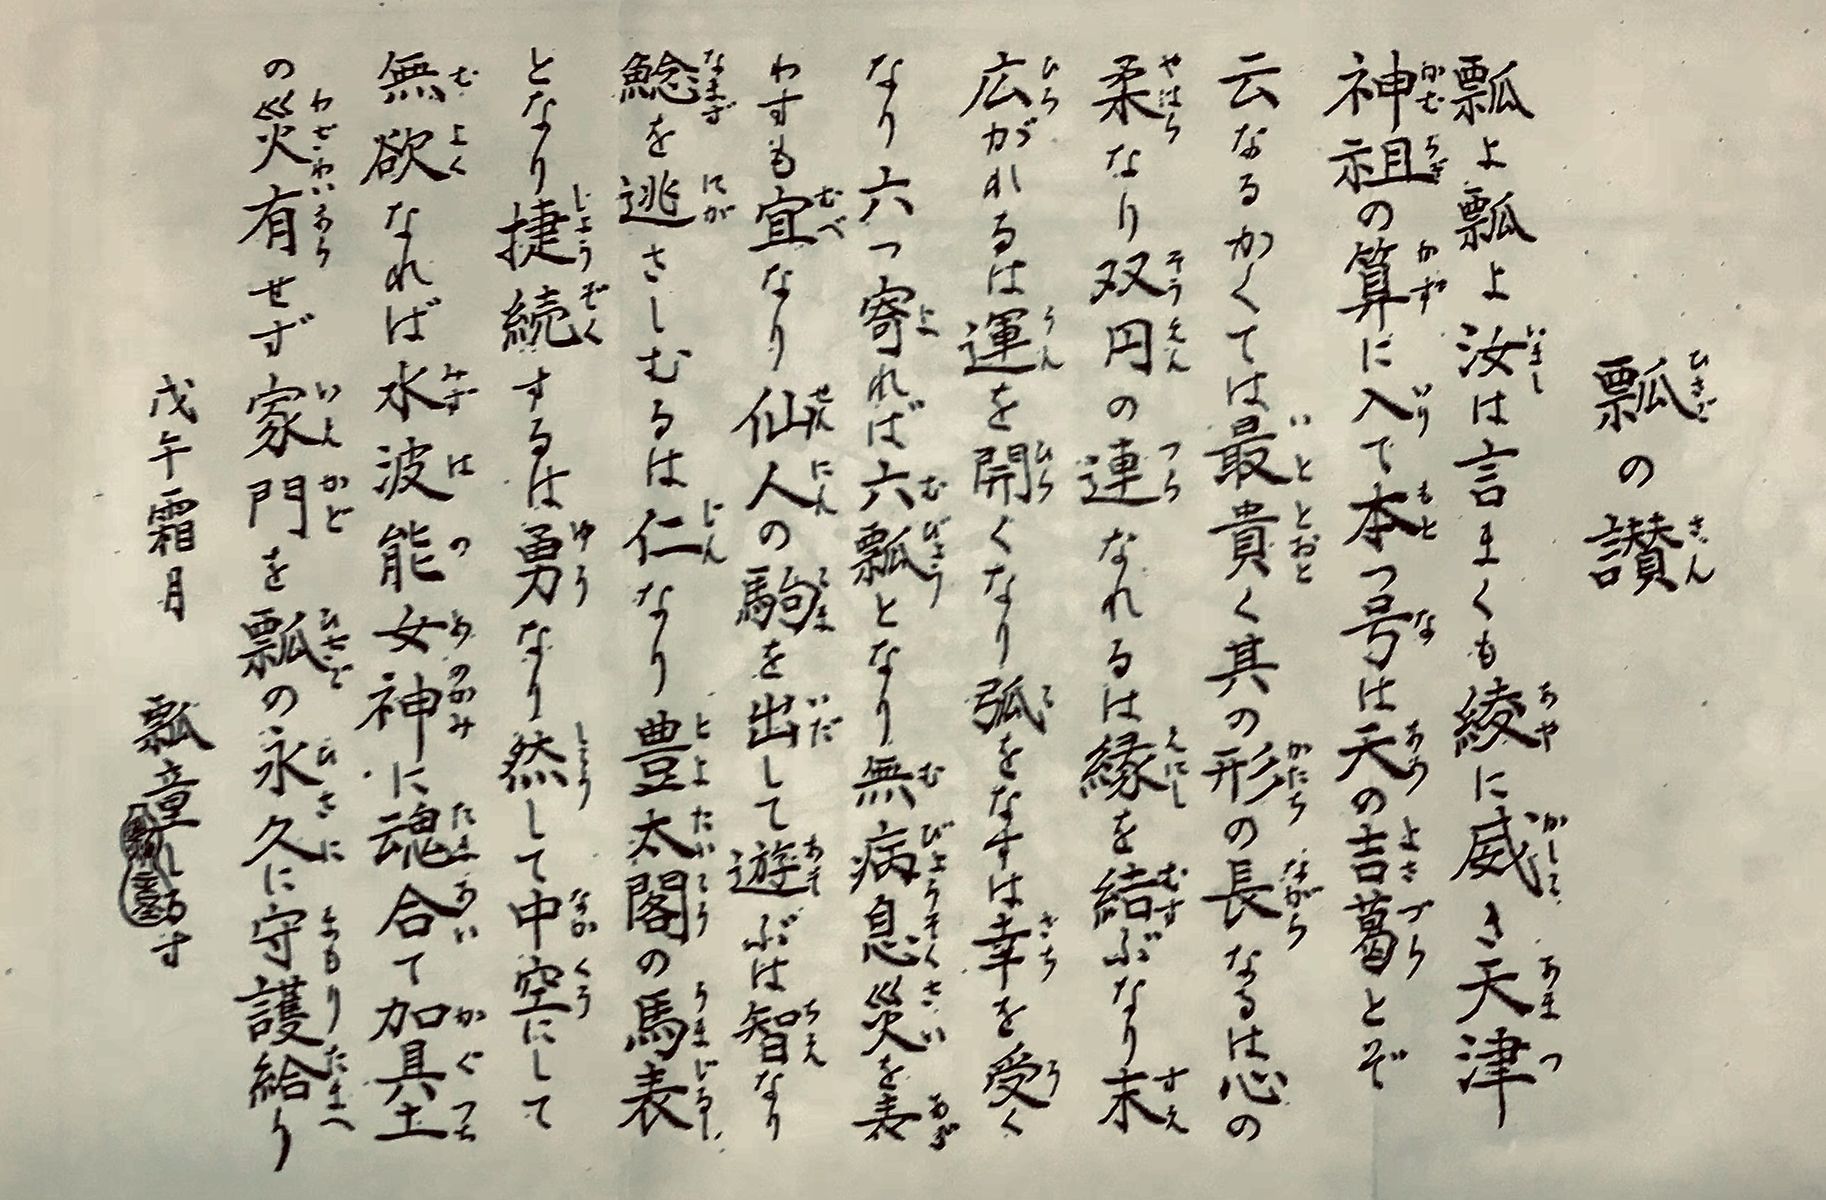 瓢の讃
瓢よ瓢よ汝は言まくも綾に威き天津
神祖の算に入て本つ号は天の吉葛とぞ
云なるかくては最貴く其の形の長なるは心の
柔なり双円の連なれるは縁を結ぶなり末
広がれるは運を開くなり弧をなすは幸を受く
なり六つ寄れば六瓢となり無病息災を表
わすも宜なり仙人の駒を出して遊ぶは智なり
鯰を逃さしむるは仁なり豊太閤の馬表
となり捷続するは勇なり然して中空にして
無欲なれば水波能女神に魂合て加具土
の災有せず家門を瓢の永久に守護給り
戊午霜月 瓢童しるす